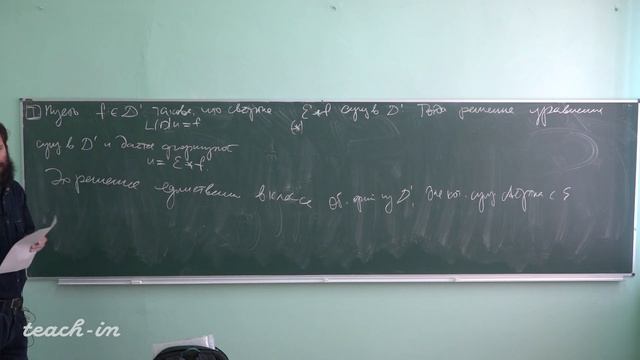 Т Пусть f ∈ D' такова, что свертка ℰ*f сущ в D' Тогда решение уравнения
L(D)u = f (*)
сущ в D' и дается формулой
u = ℰ*f.
Это решение единственно в классе об. функ из D', для кот. сущ свертка с ℰ
teach-in